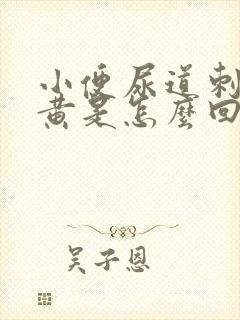 小便尿道刺
黄是怎麼回
吴子恩